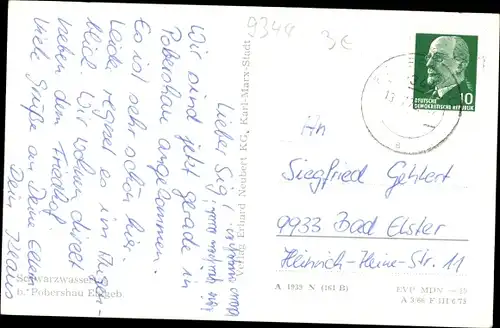 9344
3€
Lieber Sig!
Wir sind jetzt gerade in
Pobershau angekommen.
Es ist sehr schön hier.
Leider regnet es im Augen-
blick. Wir wohnen direkt
neben dem Friedhof.
Viele Grüße an Deine Eltern
Dein Klaus
Schwarzwassertal
b. Pobershau Erzgeb.
Verlag Erhard Neubert KG, Karl-Marx-Stadt
10
DEUTSCHE
DEMOKRATISCHE REPUBLIK
An
Siegfried Gehlert
9933 Bad Elster
Heinrich-Heine-Str. 11
A 1933 N (161 B)
EVP MDN